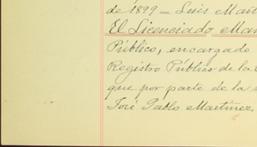 de 1899 – Luis Mart
El Licenciado Man
Público, encargado
Registro Público de la
que por parte de la
José Pablo Martínez,